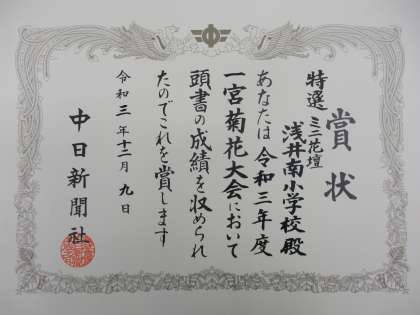 賞状
特選 ミニ花壇
浅井南小学校殿
あなたは令和三年度
一宮菊花大会において
頭書の成績を収められ
たのでこれを賞します
令和三年十二月九日
中日新聞社